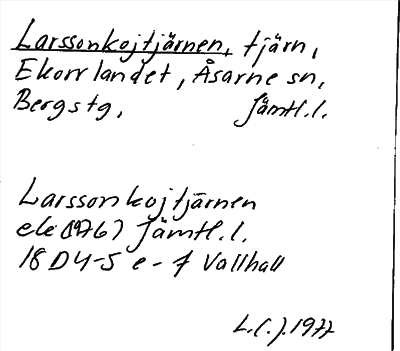 Larssonkojtjärnen, tjärn,
Ekorrlandet, Åsarne sn,
Bergs tg, Jämtl.l.
Larssonkojtjärnen
ek (1976) Jämtl.l.
18 D 4-5 e-f Vallhall
L.(.).1977